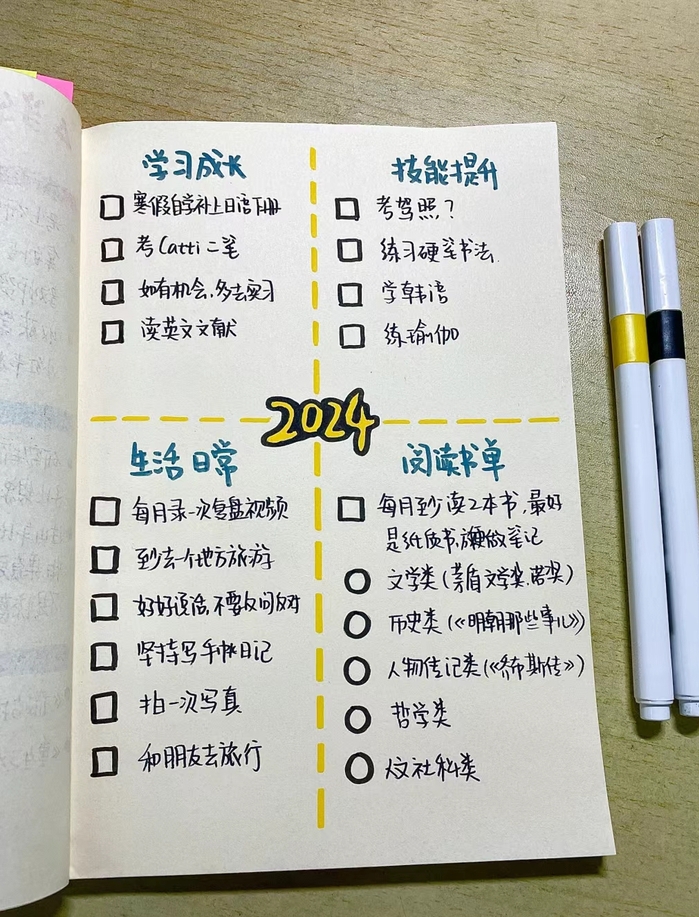 学习成长
寒假自学补上日语下册
考Catti二笔
如有机会,多去实习
读英文文献
技能提升
考驾照?
练习硬笔书法.
学韩语
练瑜伽
2024
生活日常
每月录一次复盘视频
到去一个地方旅游
好好说话,不要反问反对
坚持写手帐日记
拍一次写真
和朋友去旅行
阅读书单
每月至少读2本书,最好
是纸质书,方便做笔记
文学类(茅盾文学奖.诺奖)
历史类(《明朝那些事儿》)
人物传记类(《乔布斯传》)
哲学类
人文社科类